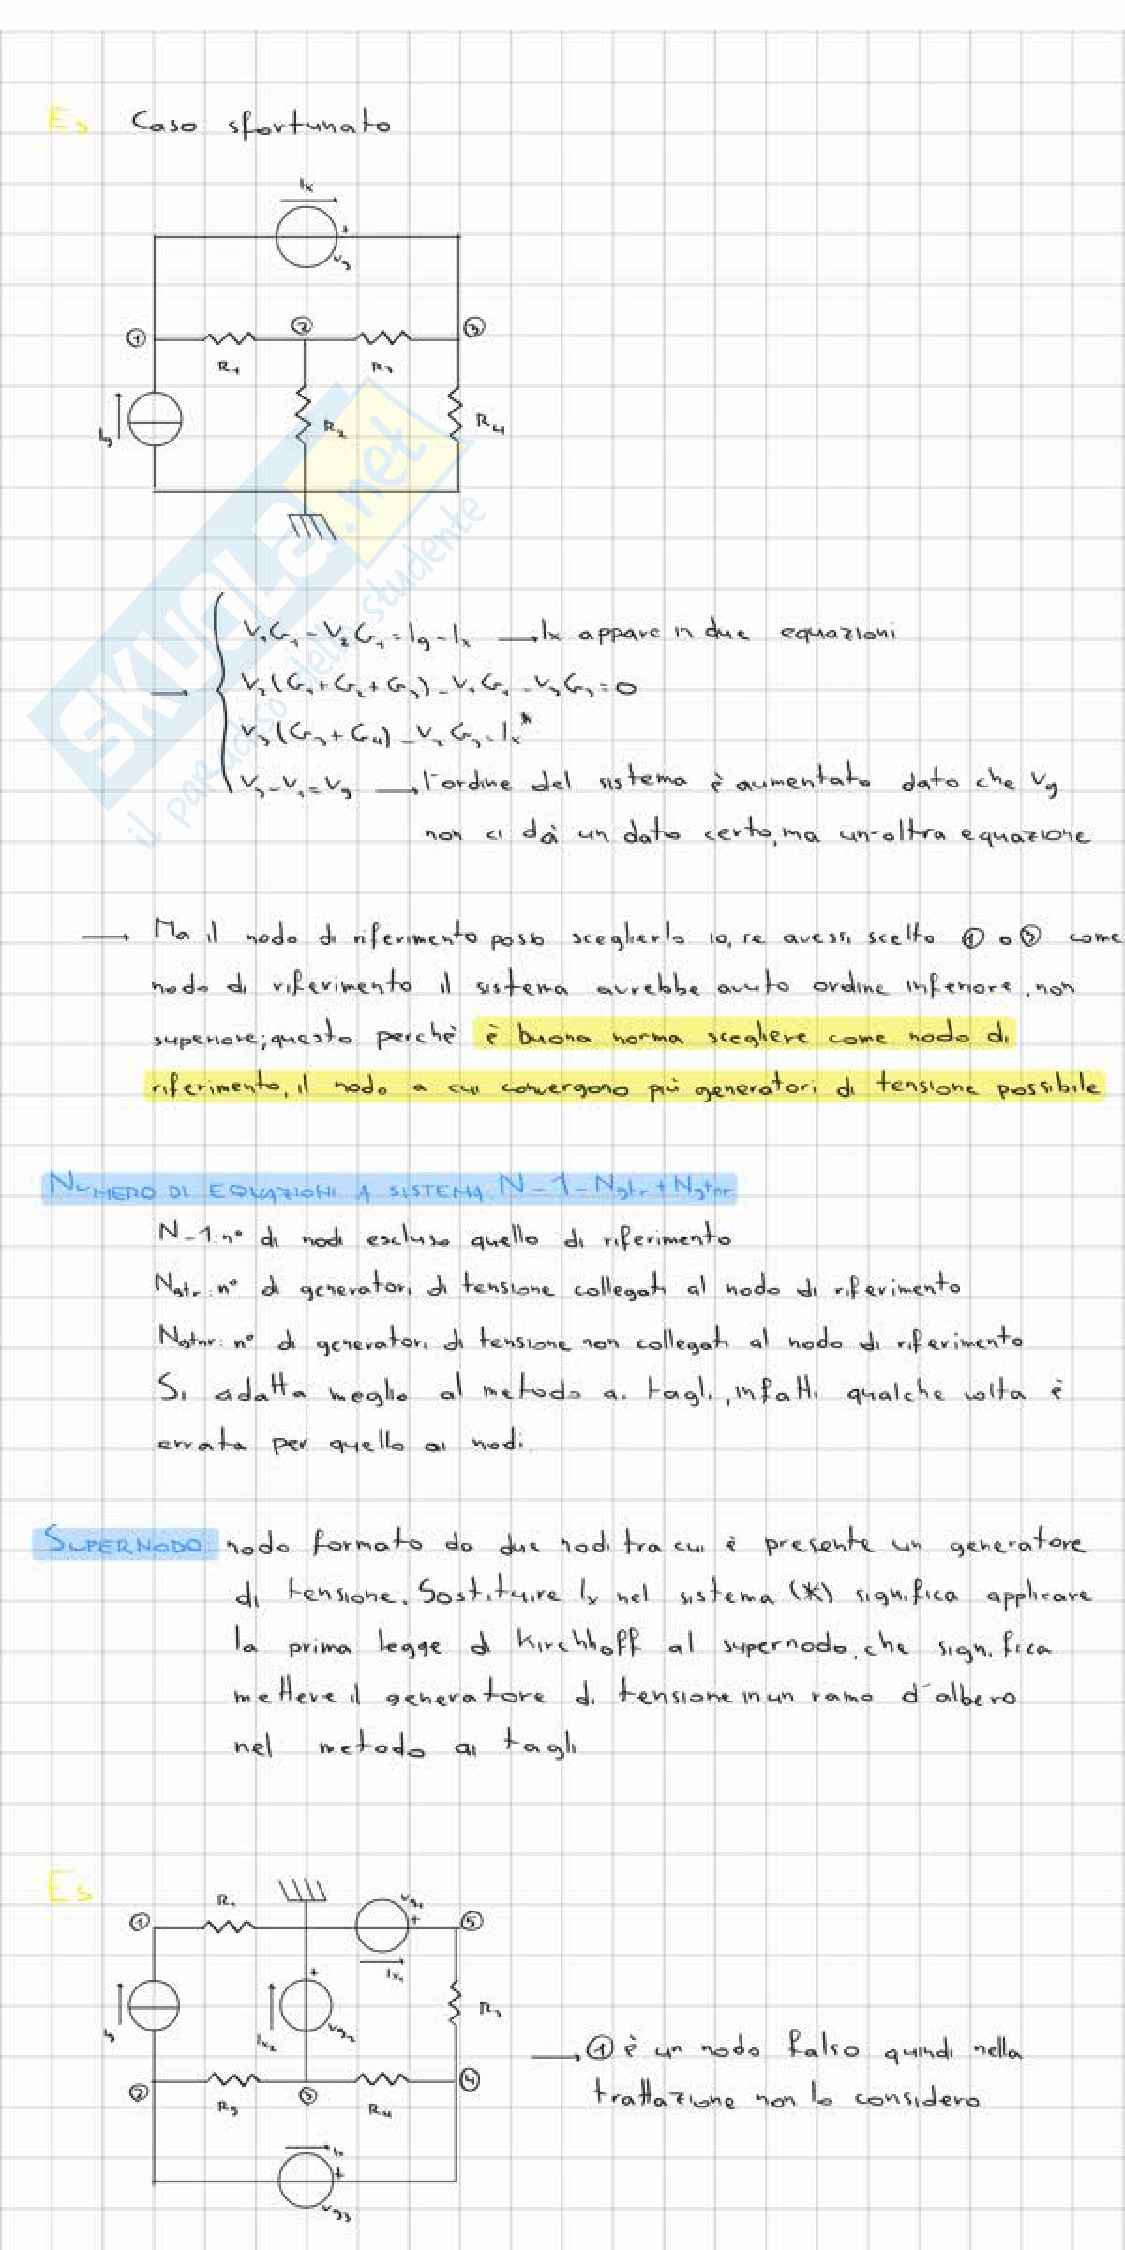 Es Caso sfortunato
Ix
+
Vg
1
2
3
R1
R3
Ig
R2
R4
SKUOLA.net
il paradiso dello studente
V1G1 - V2G1 = Ig - Ix → Ix appare in due equazioni
→ V2(G1+G2+G3) - V1G1 - V3G3 = 0
V3(G3+G4) - V2G3 = Ix *
V3 - V1 = Vg → l'ordine del sistema è aumentato dato che Vg
non ci dà un dato certo, ma un'altra equazione
→ Ma il nodo di riferimento posso sceglierlo io, se avessi scelto 1 o 3 come
nodo di riferimento il sistema avrebbe avuto ordine inferiore, non
superiore; questo perchè è buona norma scegliere come nodo di
riferimento, il nodo a cui convergono più generatori di tensione possibile
NUMERO DI EQUAZIONI A SISTEMA: N-1-Ngtr+Ngtnr
N-1: n° di nodi escluso quello di riferimento
Ngtr: n° di generatori di tensione collegati al nodo di riferimento
Ngtnr: n° di generatori di tensione non collegati al nodo di riferimento
Si adatta meglio al metodo ai tagli, infatti qualche volta è
errata per quello ai nodi.
SUPERNODO: nodo formato da due nodi tra cui è presente un generatore
di tensione. Sostituire Ix nel sistema (*) significa applicare
la prima legge di Kirchhoff al supernodo, che significa
mettere il generatore di tensione in un ramo d'albero
nel metodo ai tagli
Es
1
R1
Vg1
+
5
Ix1
Ig
Ix2
+
Vg2
R2
→ 1 è un nodo falso quindi nella
trattazione non lo considero
2
R3
3
R4
4
Ix
+
Vg3